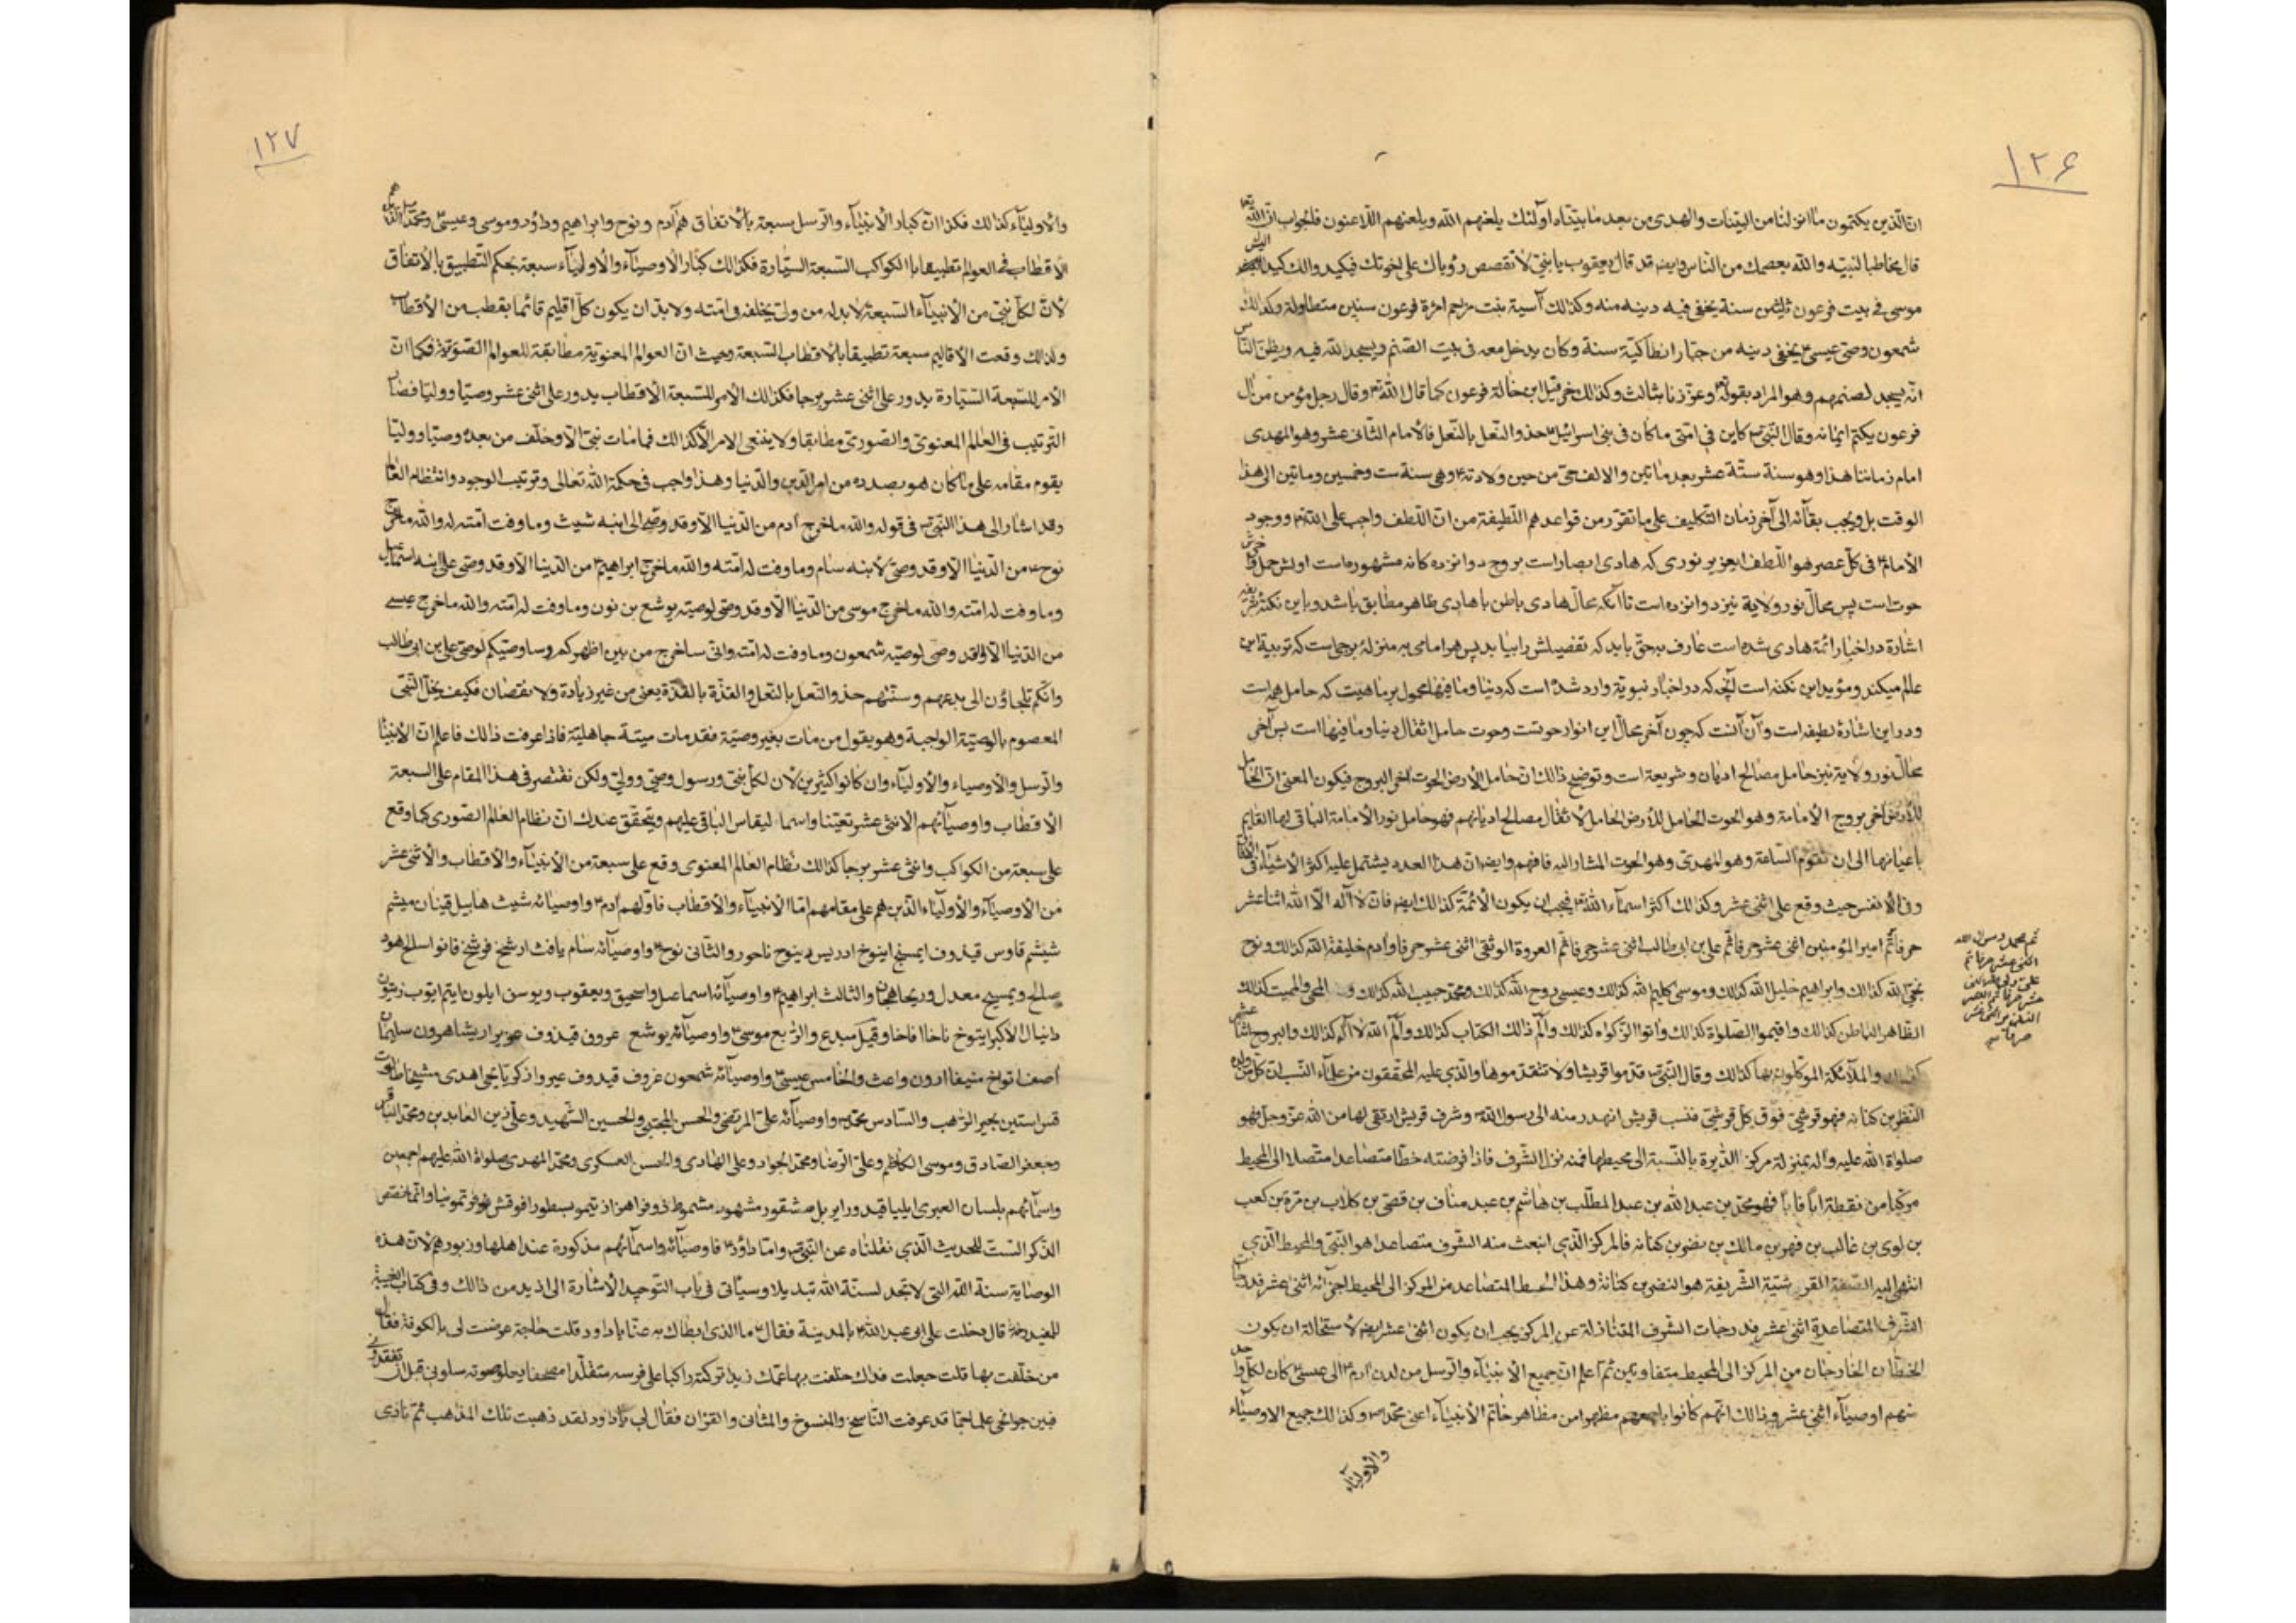 ١٢۶
ان الذین یکتمون ما انزلنا من البینات والهدی من بعد ما بیناه اولئك یلعنهم الله ویلعنهم اللاعنون فلجواب ان الله تعا
قال مخاطبا لنبیه والله یعصمك من الناس وایضا قد قال یعقوب یا بنی لا تقصص رؤیاك علی اخوتك فیکیدوا لك کیدا الیس
موسی فی بیت فرعون ثلثین سنة یخفی فیه دینه منه وکذلك آسیة بنت مزاحم امرة فرعون سنین متطاولة وکذلك
شمعون وصی عیسی یخفی دینه من جبار انطاکیة سنة وکان یدخل معه فی بیت الصنم ویسجد لله فیه ویظن الناس
انه یسجد لصنمهم وهو المراد بقوله وعززنا بثالث وکذلك خرقیل ابن خالة فرعون کما قال الله وقال رجل مؤمن من آل
فرعون یکتم ایمانه وقال النبی کاین فی امتی ما کان فی بنی اسرائیل حذو النعل بالنعل فالامام الثانی عشر وهو المهدی
امام زماننا هذا وهو سنة ستة عشر بعد ماتین والالف حی من حین ولادته وهی سنة ست وخمسین وماتین الی هذا
الوقت بل ویجب بقائه الی آخر زمان التکلیف علی ما تقرر من قواعدهم اللطیفة من ان اللطف واجب علی الله ووجود
الامام فی کل عصر هو اللطف ایعزیز نوری که هادی ابصار است بروج دوانزده کانه مشهوره است اولش حمل وآخرش
حوت است پس محال نور ولایة نیز دوانزده است تا آنکه محال هادی باطن با هادی ظاهر مطابق باشد وباین نکته شریفه
اشارة در اخبار ائمة هادی شده است عارف بحق باید که تفصیلش را بیابد پس هر امامی به منزله برجی است که تربیة این
عالم میکند ومؤید این نکته است آنچه که در اخبار نبویة وارد شده است که دنیا وما فیها محمول بر ماهیت که حامل همه است
ودر این اشارة لطیفه است وآن آنست که چون آخر محال این انوار حوتست وحوت حامل اثقال دنیا وما فیها است پس آخر
محال نور ولایة نیز حامل مصالح ادیان وشریعة است وتوضیح ذالك ان حامل الارض الحوت آخر البروج فیکون المعنی ان الحامل
للارض آخر بروج الامامة وهو الحوت الحامل للارض الحامل لاثقال مصالح ادیانهم فهو حامل نور الامامة الباقی لها القایم
باعیانها الی ان تقوم الساعة وهو المهدی وهو الحوت المشار الیه فافهم وایضا ان هذا العدد یشتمل علیه اکثر الاشیاء فی الافاق
وفی الانفس حیث وقع علی اثنی عشر وکذالك اکثر اسماء الله فیجب ان یکون الائمة کذالك ایضا فان لا اله الا الله اثنا عشر
حرفا ثم امیر المؤمنین اثنی عشر حرفا ثم علی بن ابی طالب اثنی عشر حرفا ثم العروة الوثقی اثنی عشر حرفا وآدم خلیفة الله کذلك ونوح
نجی الله کذالك وابراهیم خلیل الله کذالك وموسی کلیم الله کذالك وعیسی روح الله کذالك ومحمد حبیب الله کذالك و المحی والممیت کذالك
الظاهر الباطن کذالك واقیموا الصلواة کذالك واتوا الزکواه کذالك والم ذالك الکتاب کذالك والم الله لا اله کذالك والبروج اثنا عشر
کذالك والملائکة الموکلون بها کذالك وقال النبی قدموا قریشا ولا تتقدموها والذی علیه المحققون من علماء النسب ان کل من ولده
النظر بن کنانه فهو قرشی فوق کل قرشی فنسب قریش انهدر منه الی رسول الله وشرف قریش ارتقی لها من الله عز وجل فهو
صلواة الله علیه وآله بمنزلة مرکز الدایرة بالنسبة الی محیطها فمنه نزل الشرف فاذا فرضته خطا متصاعدا متصلا الی المحیط
مرکبا من نقطة ابا فابا فهو محمد بن عبد الله بن عبد المطلب بن هاشم بن عبد مناف بن قصی بن کلاب بن مرة بن کعب
بن لوی بن غالب بن فهر بن مالك بن نضر بن کنانه فالمرکز الذی انبعث منه الشرف متصاعدا هو النبی والمحیط الذی
انتهی الیه الصفة القرشیة الشریفة هو النضر بن کنانة وهذا الخط المتصاعد من المرکز الی المحیط اجزائه اثنی عشر فدرجات
الشرف المتصاعدة اثنی عشر فدرجات الشرف المتنازلة عن المرکز یجب ان یکون اثنی عشر ایضا لاستحالة ان یکون
الخطان الخارجان من المرکز الی المحیط متفاوتین ثم اعلم ان جمیع الانبیاء والرسل من لدن ادم الی عیسی کان لکل واحد
منهم اوصیاء اثنی عشر وذالك انهم کانوا باجمعهم مظهرا من مظاهر خاتم الانبیاء اعنی محمد وکذالك جمیع الاوصیاء
والاولیاء
ثم محمد رسول الله
اثنی عشر حرفا ثم
١٢٧
والاولیاء کذالك فکذا ان کبار الانبیاء والرسل سبعة بالاتفاق هم آدم ونوح وابراهیم وداؤد وموسی وعیسی ومحمد
الاقطاب فی العوالم تطبیقا بالکواکب السبعة السیارة فکذالك کبار الاوصیاء والاولیاء سبعة بحکم التطبیق بالاتفاق
لان لکل نبی من الانبیاء السبعة لابد له من ولی یخلفه فی امته ولابد ان یکون کل اقلیم قائما بقطب من الاقطاب
ولذلك وقعت الاقالیم سبعة تطبیقا بالاقطاب السبعة وحیث ان العوالم المعنویة مطابقة للعوالم الصوریة فکما ان
الامر للسبعة السیارة یدور علی اثنی عشر برجا فکذالك الامر للسبعة الاقطاب یدور علی اثنی عشر وصیا وولیا فصار
الترتیب فی العالم المعنوی والصوری مطابقا ولا ینبغی الامر الا کذالك فما مات نبی الا وخلف من بعده وصیا وولیا
یقوم مقامه علی ما کان هو بصدده من امر الدین والدنیا وهذا واجب فی حکمة الله تعالی وترتیب الوجود وانتظام العالم
وقد اشار الی هذا النبی فی قوله والله ما خرج آدم من الدنیا الا وقد وصی الی ابنه شیث وما وفت امته له والله ما خرج
نوح من الدنیا الا وقد وصی لابنه سام وما وفت له امته والله ما خرج ابراهیم من الدنیا الا وقد وصی علی ابنه اسمعیل
وما وفت له امته والله ما خرج موسی من الدنیا الا وقد وصی لوصیه یوشع بن نون وما وفت له امته والله ما خرج عیسی
من الدنیا الا وقد وصی لوصیه شمعون وما وفت له امته وانی ساخرج من بین اظهرکم وساوصیکم لوصی علی بن ابی طالب
وانکم تلجاؤن الی بدعهم وسننهم حذو النعل بالنعل والقذة بالقذة یعنی من غیر زیادة ولا نقصان فکیف یخل النبی
المعصوم بالوصیة الواجبة وهو یقول من مات بغیر وصیة فقد مات میتة جاهلیة فاذا عرفت ذالك فاعلم ان الانبیا
والرسل والاوصیاء والاولیاء وان کانوا کثیرین لان لکل نبی ورسول وصی وولی ولکن نقتصر فی هذا المقام علی السبعة
الاقطاب واوصیائهم الاثنی عشر تعینا واسما لیقاس الباقی علیهم ویتحقق عندك ان نظام العالم الصوری کما وقع
علی سبعة من الکواکب واثنی عشر برجا کذالك نظام العالم المعنوی وقع علی سبعة من الانبیاء والاقطاب والاثنی عشر
من الاوصیاء والاولیاء الذین هم علی مقامهم اما الانبیاء والاقطاب فاولهم آدم واوصیائه شیث هابیل قینان میشم
شیشم قاوس قیذوف ایمسخ اینوخ ادریس دینوخ ناحور والثانی نوح واوصیائه سام یافث ارشخ فرشخ فانو اسلخ هود
صالح دیمسیح معدل دریحا هجان والثالث ابراهیم واوصیائه اسماعیل واسحق ویعقوب ویوسن ایلون ایتم ایوب زیتون
دانیال الاکبر اینوخ ناخا وقیل مبدع والرابع موسی واوصیائه یوشع عروف قیذوف عزیر اریشا هرون سلیمان
آصف اتواخ منیفا ارون واعث والخامس عیسی واوصیائه شمعون عروف قیذوف عیر واذکریا یحیی اهدی مشیخا طالوت
قس استین بحیر الراهب والسادس محمد واوصیائه علی المرتضی والحسن المجتبی والحسین الشهید وعلی زین العابدین ومحمد الباقر
وجعفر الصادق وموسی الکاظم وعلی الرضا ومحمد الجواد وعلی الهادی والحسن العسکری ومحمد المهدی صلواة الله علیهم اجمعین
واسمائهم بلسان العبری ایلیا قیدور ایربل مشقور مشهور مشموط ذوفرا هزاز تیمو بسطور افوقش قوفر تمونیا وانما نختص
الذکر الست للحدیث الذی نقلناه عن النبی واما داؤد فاوصیائه واسمائهم مذکورة عند اهلها وزبورهم لان هذه
الوصایة سنة الله التی لا تجد لسنة الله تبدیلا وسیأتی فی باب التوحید الاشارة الی ازید من ذالك وفی کتاب الغیبة
للمفید قال دخلت علی ابی عبد الله بالمدینة فقال ما الذی ابطاك به عنا یا داود قلت حاجة عرضت لی بالکوفة فقال
من خلفت بها قلت جعلت فداك خلفت بها عمك زیدا ترکته راکبا علی فرسه متقلدا مصحفا یعلو صوته سلونی قبل ان تفقدونی
فبین جوانحی علما جما قد عرفت الناسخ والمنسوخ والمثانی والقران فقال لی یا داود لقد ذهبت تلك المذاهب ثم نادی